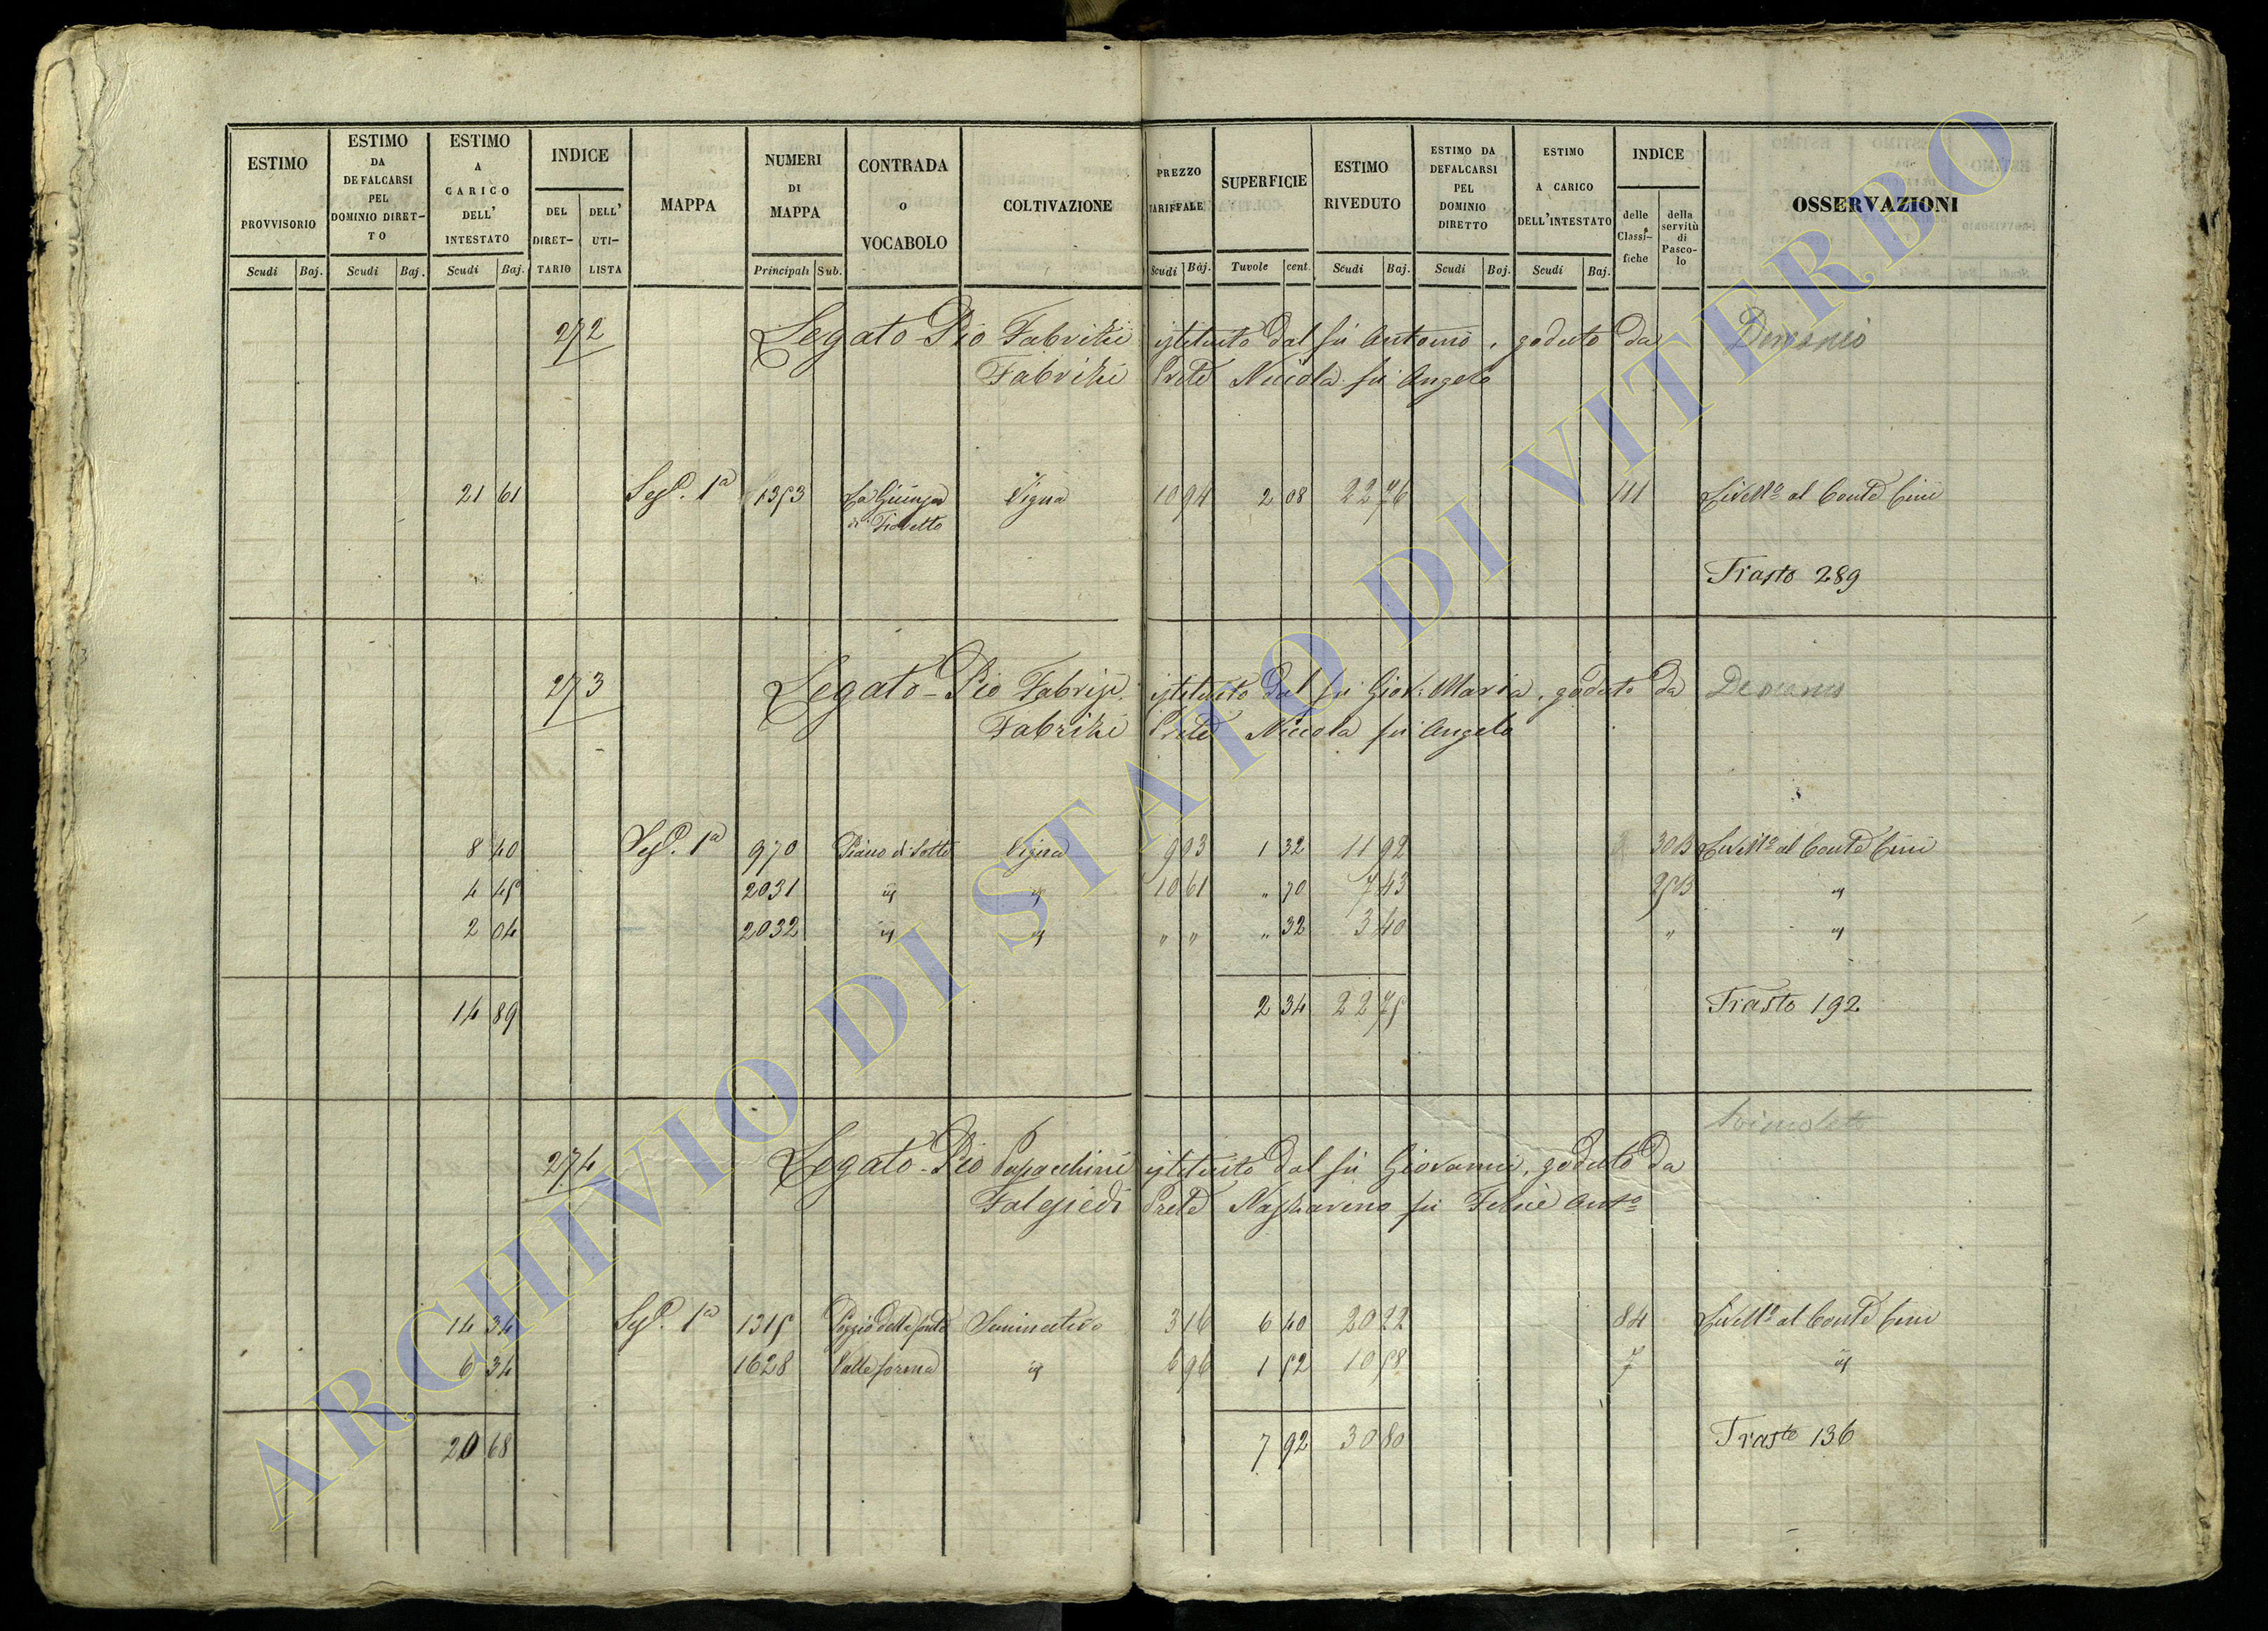 ESTIMO PROVVISORIO
ESTIMO DA DEFALCARSI PEL DOMINIO DIRET-TO
ESTIMO A CARICO DELL' INTESTATO
INDICE
DEL DIRET-TARIO
DELL' UTI-LISTA
MAPPA
NUMERI DI MAPPA
CONTRADA o VOCABOLO
COLTIVAZIONE
PREZZO TARIFFALE
SUPERFICIE
ESTIMO RIVEDUTO
ESTIMO DA DEFALCARSI PEL DOMINIO DIRETTO
ESTIMO A CARICO DELL'INTESTATO
INDICE
delle Classi-fiche
della servitù di Pasco-lo
OSSERVAZIONI
Scudi Baj. Scudi Baj. Scudi Baj. Principali Sub. Scudi Baj. Tavole cent. Scudi Baj. Scudi Baj. Scudi Baj.
272 Legato Pio Fabrizi istituito dal fu Antonio, goduto da Demanio
Fabrizi Prete Niccola fu Angelo
21 61 Sez. 1a 1353 Vigna 10 94 2 08 22 76 111 Livello al Conte Cini
Trasto 289
273 Legato Pio Fabrizi istituito dal fu Giov: Maria, goduto da Demanio
Fabrizi Prete Niccola fu Angelo
8 40 Sez. 1a 970 Piano di Sotto Vigna 9 03 1 32 11 92 30B Livello al Conte Cini
4 45 2031 10 61 " 70 7 43 25B
2 04 2032 " " " 32 3 40 "
14 89 2 34 22 75 Trasto 192
274 Legato Pio Papacchini istituito dal fu Giovanni, goduto da
Falesiedi Prete Nazzareno fu Felice Anto
14 34 Sez. 1a 1315 Poggio della fonte Seminativo 3 16 6 40 20 22 84 Livello al Conte Cini
6 34 1628 Valle forma 6 96 1 52 10 58 7
20 68 7 92 30 80 Trasto 136
ARCHIVIO DI STATO DI VITERBO